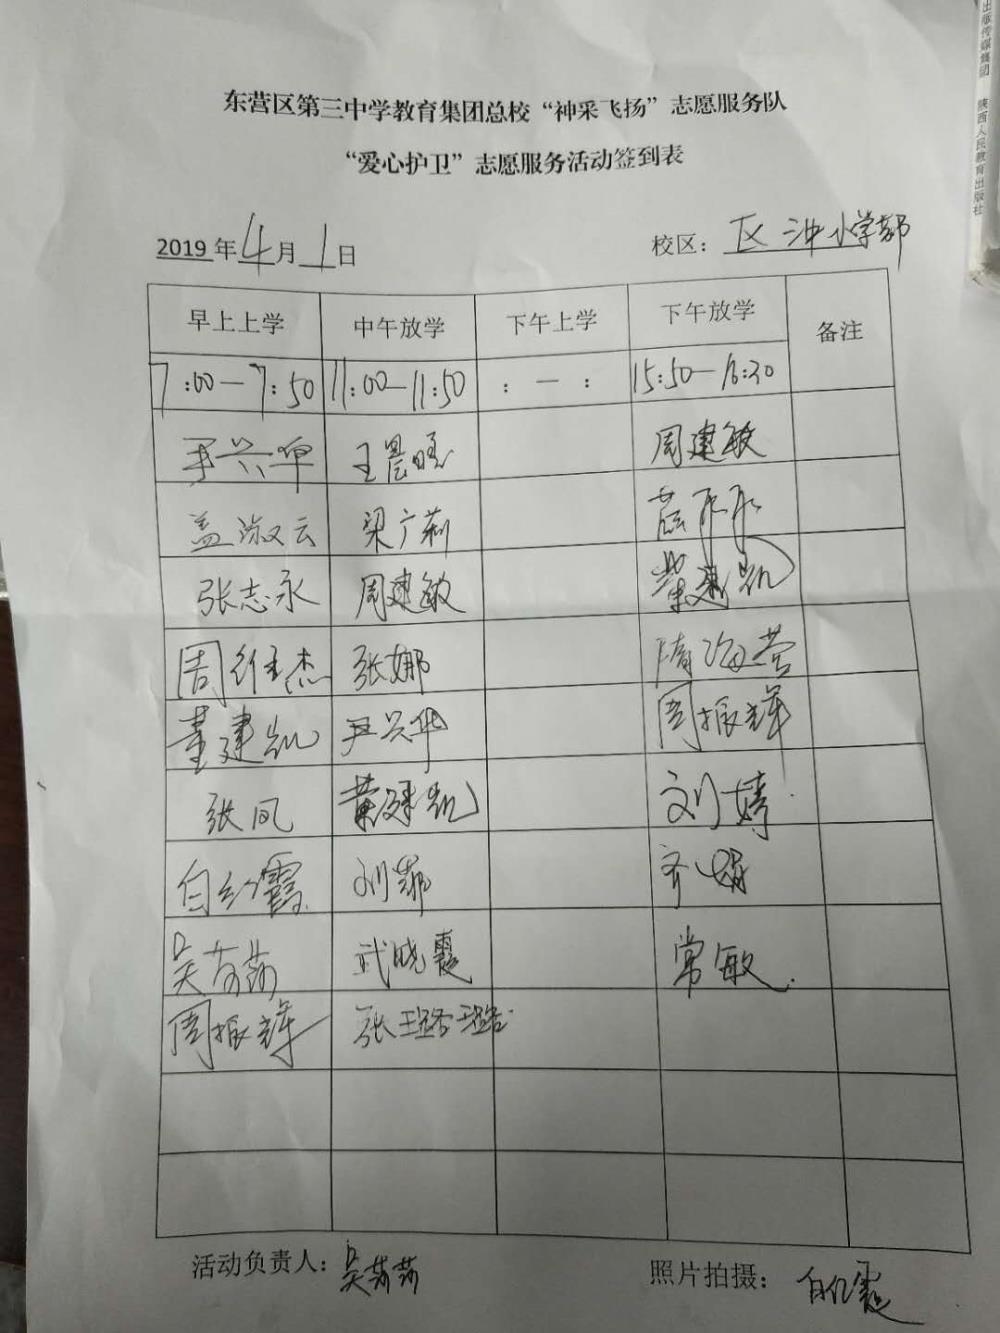 东营区第三中学教育集团总校“神采飞扬”志愿服务队
“爱心护卫”志愿服务活动签到表
2019年4月1日 校区：区三中小学部
早上上学 中午放学 下午上学 下午放学 备注
7:00—7:50 11:00—11:50 :—: 15:50—16:30
尹兴华 王晨旺 周建敏
盖淑云 梁广莉
张志永 周建敏
周维杰 张娜 隋海营
董建凯 尹兴华 周振辉
张凤 刘婷
白红霞 刘菲 齐娟
吴莎莎 武晓霞 常敏
周振辉 张璐璐
活动负责人：吴莎莎 照片拍摄：白红霞
出版传媒集团 陕西人民教育出版社